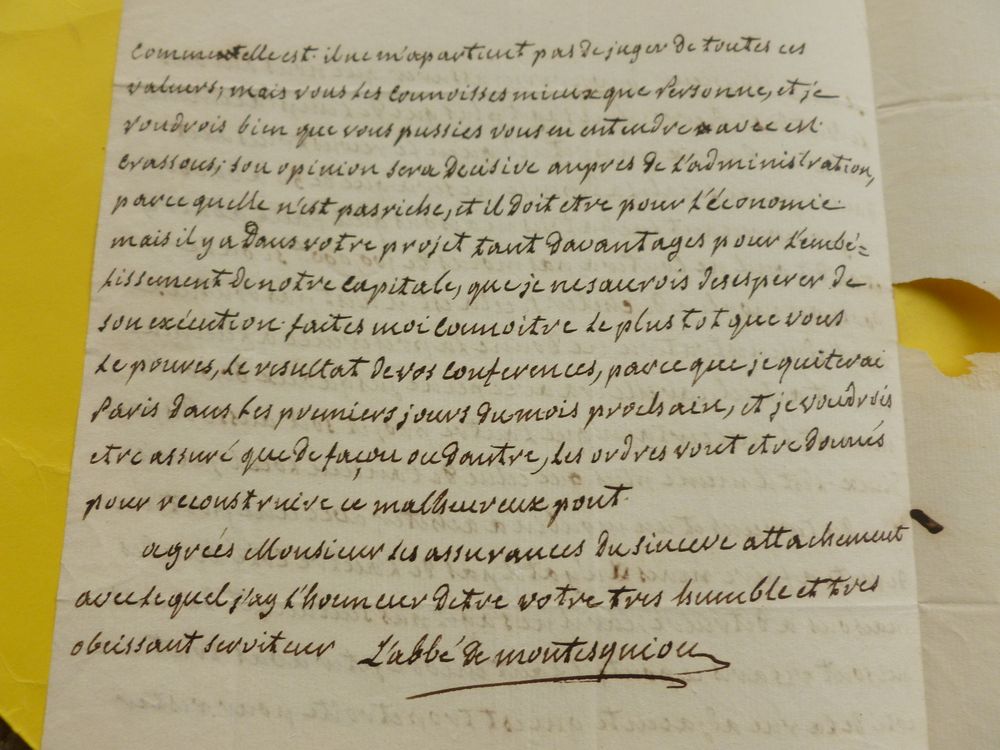 comme elle est. il ne m'apartient pas de juger de toutes ces
valuers; mais vous les connoisses mieux que Personne, et je
voudrois bien que vous pussies vous en entendre avec est.
Crassous; son opinion sera decisive aupres de l'administration,
parce quelle n'est pas riche, et il doit etre pour l'économie.
mais il y a dans votre projet tant davantages pour l'embé=
lissement de notre capitale, que je ne saurois desesperer de
son exécution. faites moi connoitre le plus tot que vous
le poures, le resultat de vos conferences, parce que je quiterai
Paris dans les premiers jours du mois prochain, et je voudrois
etre assuré que de façon ou dautre, les ordres vont etre donnés
pour reconstruire ce malheureux pont.
agreés Monsieur les assurances du sincere attachement
avec le quel j'ay l'honneur detre votre tres humble et tres
obeissant serviteur L'abbé de montesquiou